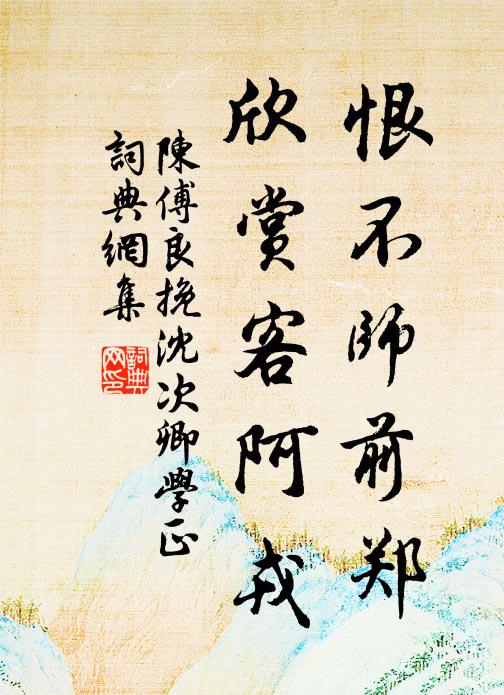 恨不师前郑
欣赏客阿戎
陳傅良挽沈次卿學正
詞典網集
詞典網印